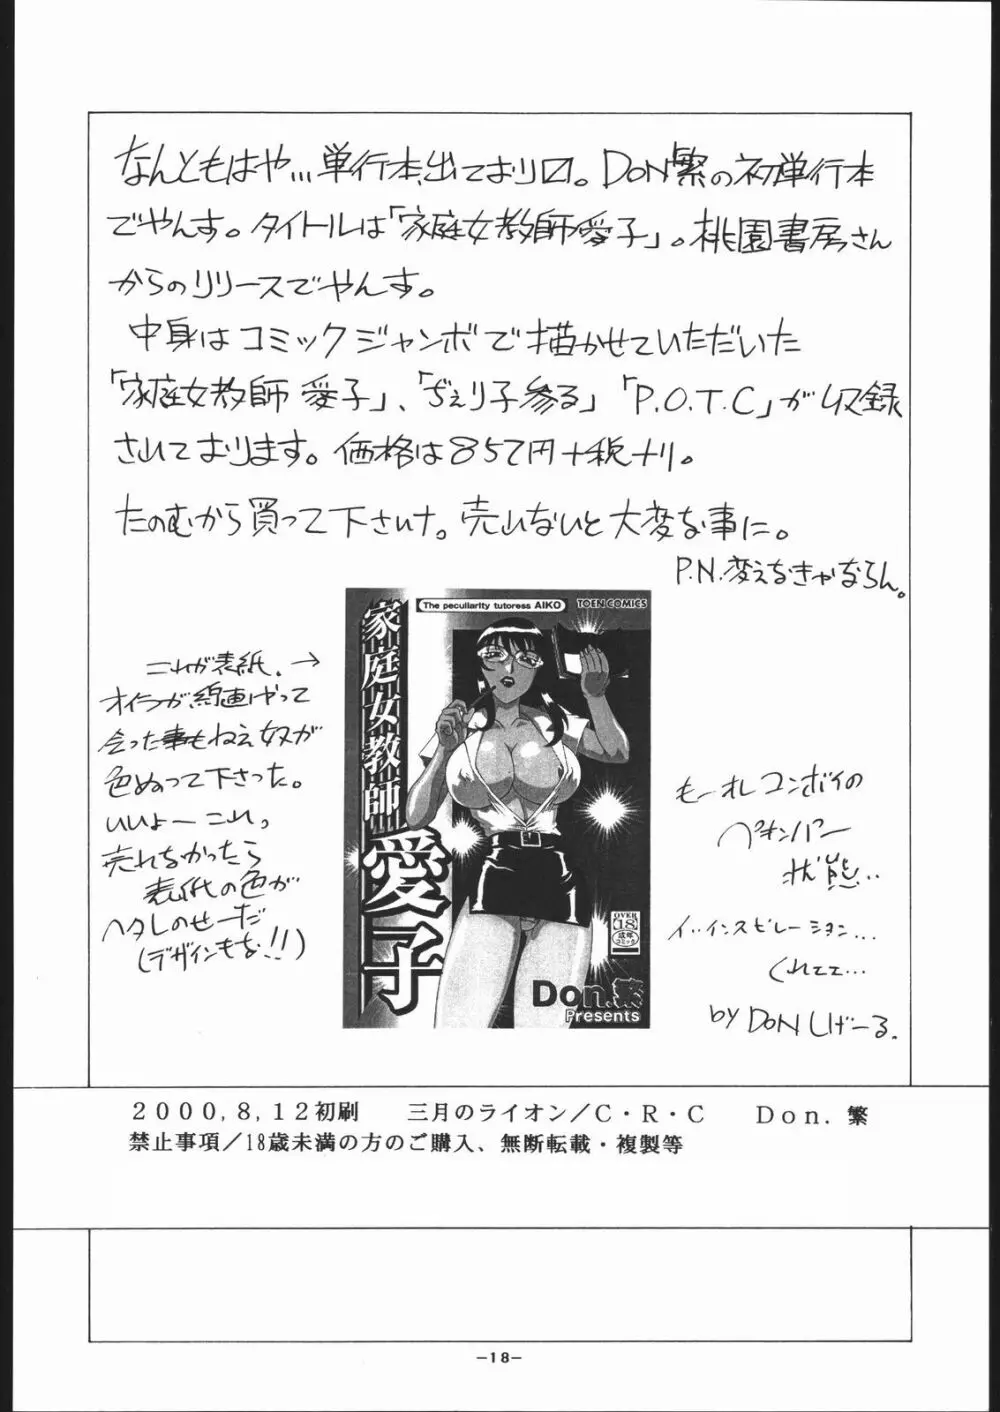 なんともはや…単行本、出ており〼。DON繁の初単行本
でやんす。タイトルは「家庭女教師愛子」。桃園書房さん
からのリリースでやんす。
中身はコミックジャンボで描かせていただいた
「家庭女教師 愛子」、「ぢぇり子参る」「P.O.T.C」が収録
されております。価格は857円+税+り。
たのむから買って下さいナ。売れないと大変な事に。
P.N.変えなきゃならん。
The peculiarity tutoress AIKO
TOEN COMICS
家庭女教師
愛子
OVER
18
成年
コミック
Don.繁
Presents
これが表紙。→
オイラが線画はやって
会った事もねえ奴が
色ぬって下さった。
いいよーこれっ
売れなかったら
表紙の色が
ヘタレのせーだ
(デザインもな!!)
もーオレコンボイの
ペキンパー
状態…
インスピレーション…
くれェェ…
by DONしげーる.
2000,8,12初刷　三月のライオン/C・R・C　Don. 繁
禁止事項/18歳未満の方のご購入、無断転載・複製等
−18−